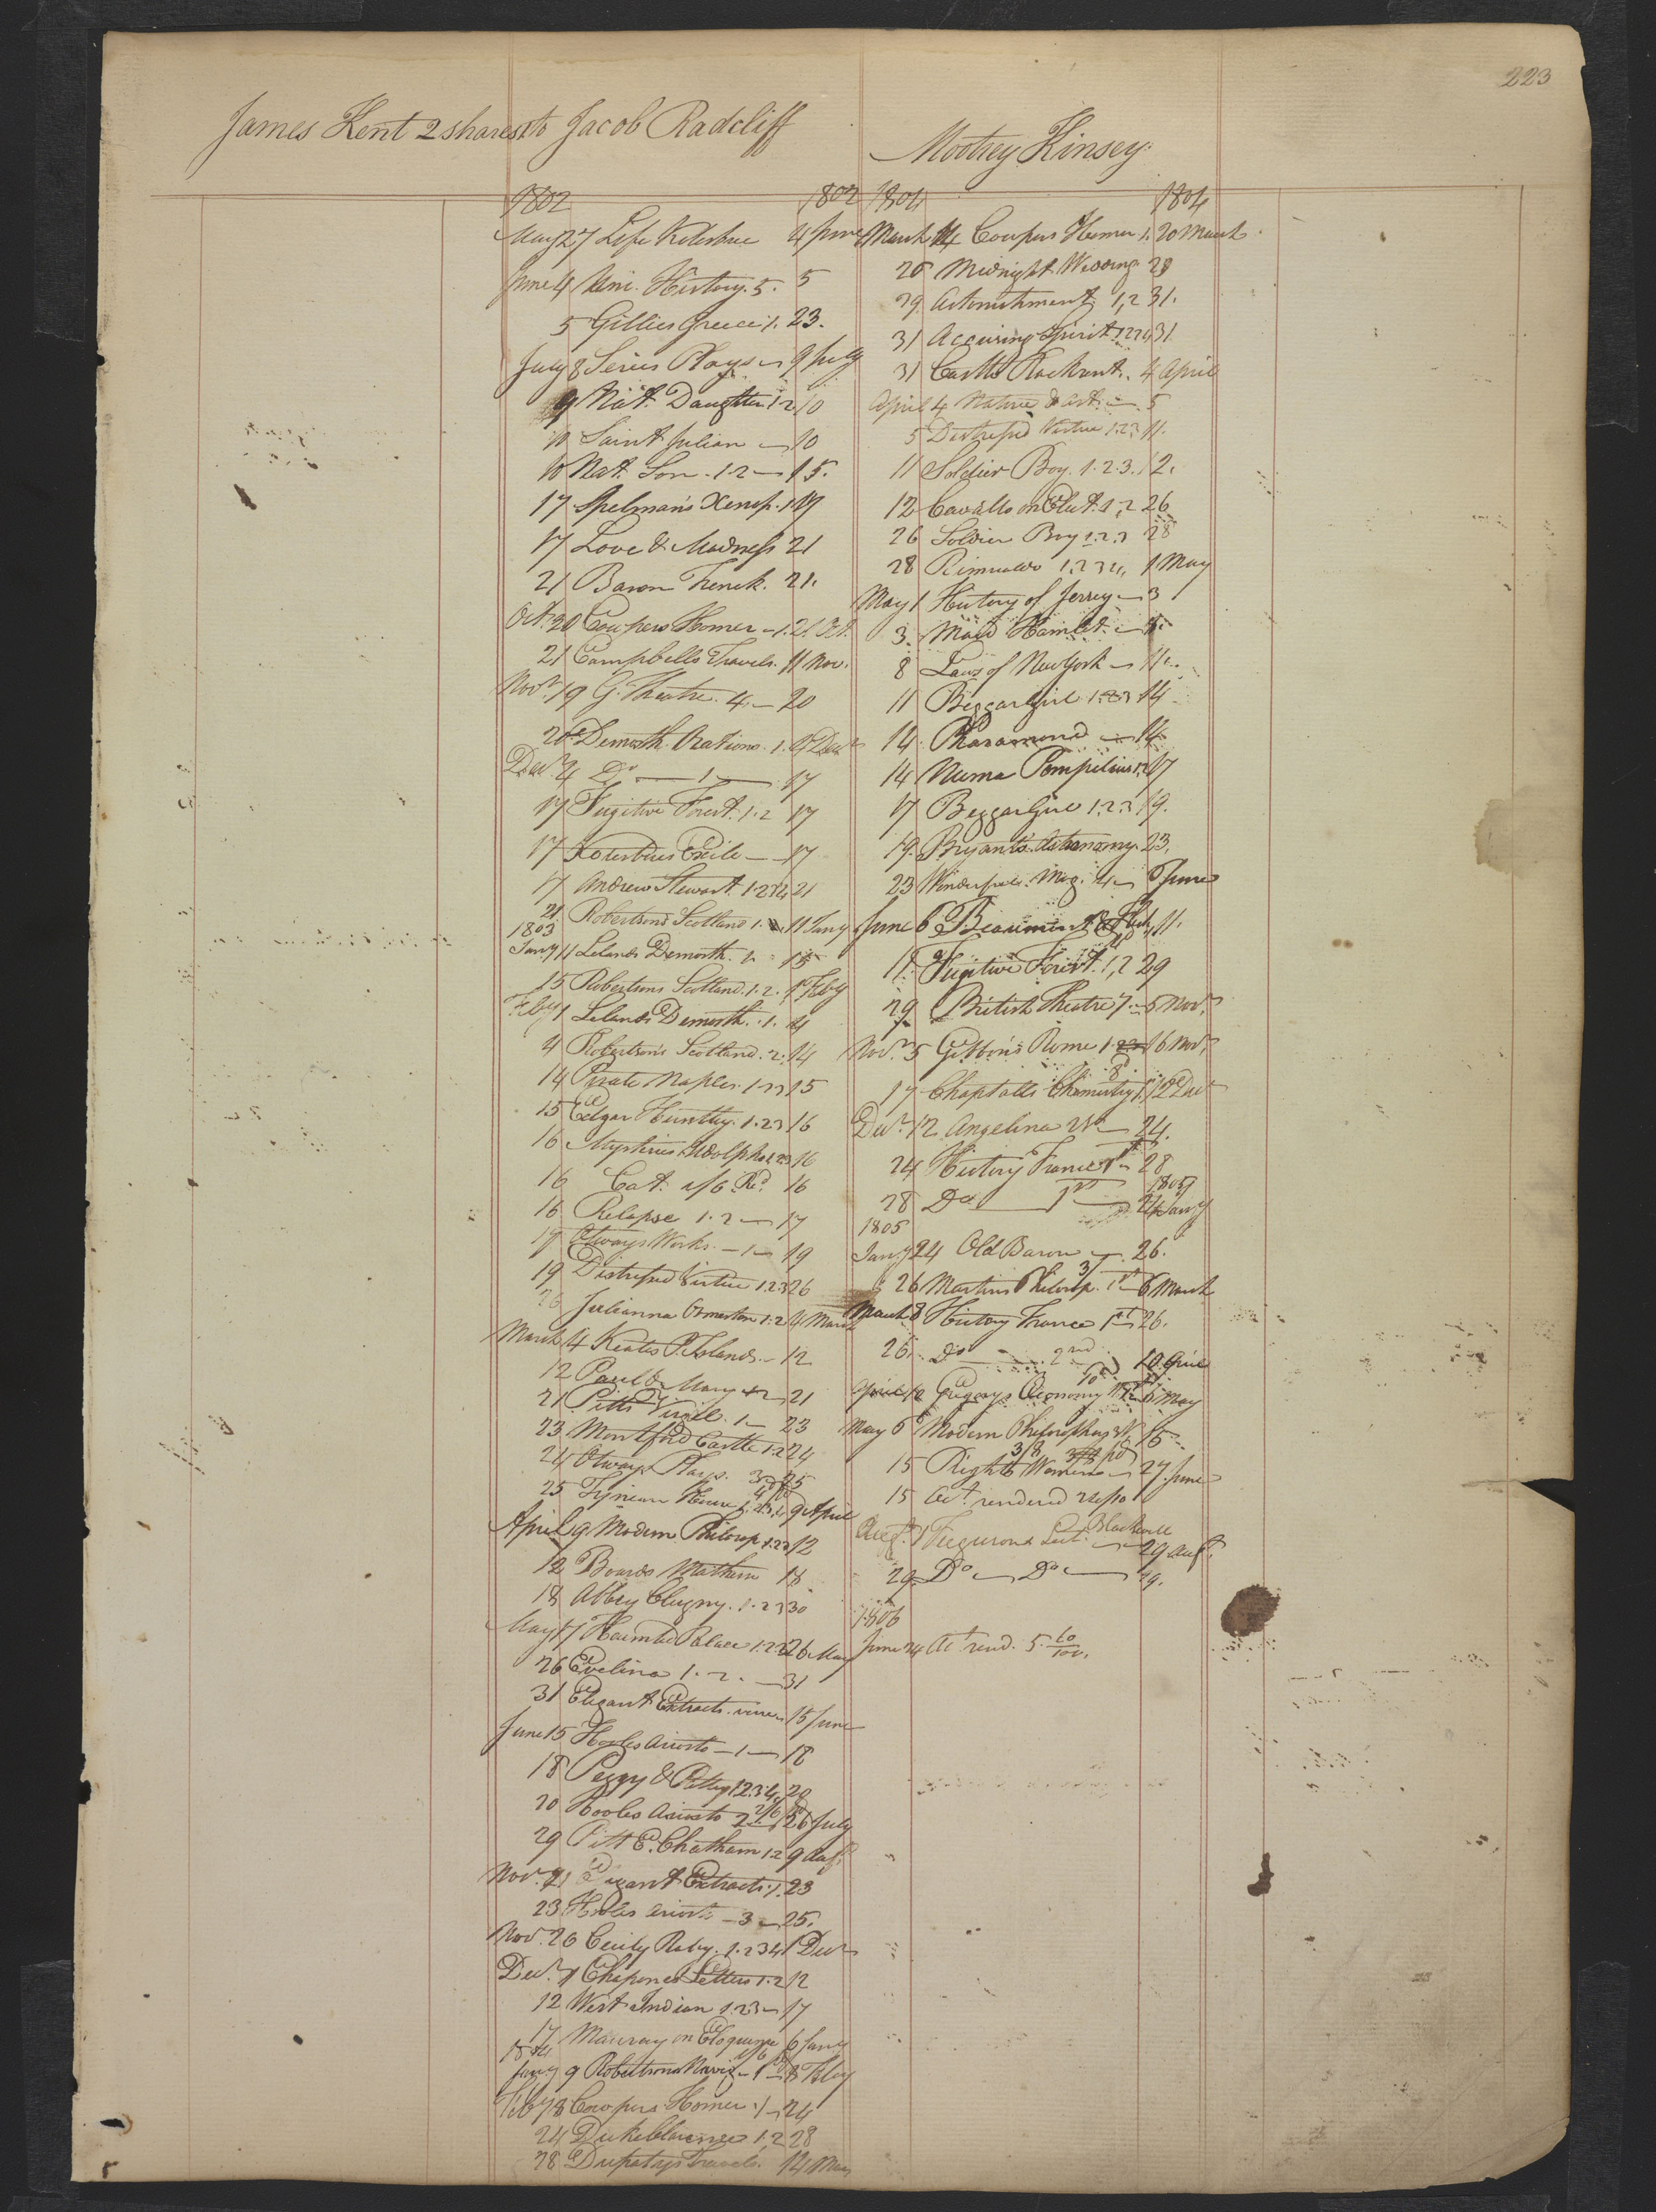 223
James Kent 2 shares to Jacob Radcliff
Mootrey Kinsey
1802 1802
May 27 Life Kotesbue 4 June
June 4 Uni. History. 5. 5
5 Gillies Greece 1. 23.
July 8 Series Plays 9 July
9 Nat. Daughter 1 2 10
10 Saint Julian 10
10 Nat. Son. 1.2 15.
17 Spelmans Xenop. 1 19
17 Love & Madness 21
21 Baron Trenck. 21.
Oct. 20 Cowpers Homer 1. 21. Oct.
21 Campbells Travels. 11 Nov.
Novr 19 G. Theatre. 4. 20
20 Demosth. Orations. 1. 4 Decr
Decr 4 Do 1 17
17 Fugitive Forest. 1.2 17
17 Kotesbues Exile 17
17 Andrew Stewart. 1.2 21
21 Robertsons Scotland 1. 11 Jany
1803
Jany 11 Lelands Demosth. 15
15 Robertsons Scotland. 1.2. 1 Feby
Feby 1 Lelands Demosth. 1. 4
4 Robertson's Scotland. 2. 14
14 Pirate Naples. 1.2.3 15
15 Edgar Huntley. 1.2.3 16
16 Mysteries Udolpho 1.2.3 16
16 Cat. 1/6 Pd 16
16 Relapse 1.2 17
17 Otways Works. 1 19
19 Distressed Virtue 1.2.3 26
26 Julianna Ormeston 1.2 4 March
March 4 Keates P. Islands. 12
12 Paul & Mary 21
21 Pitts Virgil. 1 23
23 Montford Castle 1.2 24
24 Otways Plays. 3 25
25 9 April
April 9 Modern Philosop 1.2.3 12
12 18
18 Abbey Clugny. 1.2.3 30
May 17 Haunted Palace 1.2.3 26 May
26 Evelina 1.2. 31
31 Elegant Extracts. 15 June
June 15 Hooles Ariosto 1 18
18 Peggy & Patty 1 2.3.4, 20
20 Hooles Ariosto 2 26 July
29 Pitt E. Chatham 1.2 9 Augt
Novr 21 Elegant Extracts. 1. 23
23 Hooles Ariosto 3 25.
Novr 26 Cecily Raby. 1.2 3 4 1 Decr
Decr 1 Chapones Letters 1.2 12
12 West Indian 1.2.3 17
17 Mauray on Eloquence 6 Jany
1804
Jany 9 Robertsons 1 8 Feby
Feby 8 Cowpers Homer 1 24
24 Duke Clarence 1.2 28
28 Dupatys Travels. 14 Mar
1804 1804
March 14 Cowpers Homer 1. 20 March
20 Midnight Wedding 29
29 Astonishment 1,2 31.
31 Accusing Spirit 1 2 3 4 31
31 Castle Rackrent. 4 April
April 4 Nature & Art. 5
5 Distressed Virtue 1.2.3 11.
11 Soldier Boy. 1.2.3. 12.
12 Cavallo on Elect. 1,2 26
26 Soldier Boy 1.2.3 28
28 Rimualdo 1.2 3 4, 1 May
May 1 History of Jersey 3
3. Maid Hamlet. 8.
8 Laws of New York 11.
11 Beggar Girl 1.2.3 14
14 Pharamond 14
14 Numa Pompilius 1.2 17
17 Beggar Girl 1.2.3 19.
19. Bryants Astronomy. 23.
23 Wonderful Mag. 4 6 June
June 6 Beaumont & Fletch. 11.
11. Fugitive Forest. 1,2 29
29 British Theatre 7. 5 Novr
Novr 5 Gibbon's Rome 1 16 Novr
17 Chaptalls Chemistry 1. 12 Decr
Decr 12 Angelina 24.
24 History France 1st 28
1805
28 Do 1st 24 Jany
1805
Jany 24 Old Baron 26.
26 Martins Philosop. 1st 6 March
March 8 History France 1st 26.
26. Do 2nd 10 April
April 10 Gregorys Economy 6 May
May 6 Modern Philosophers 15
15 Rights Woman 27 June
15 Act rendered
Augt 1 Fergusons Lect. Blackwell 29 Augt
29 Do Do 29.
1806
June 24 Act rend. 5. 60/100.